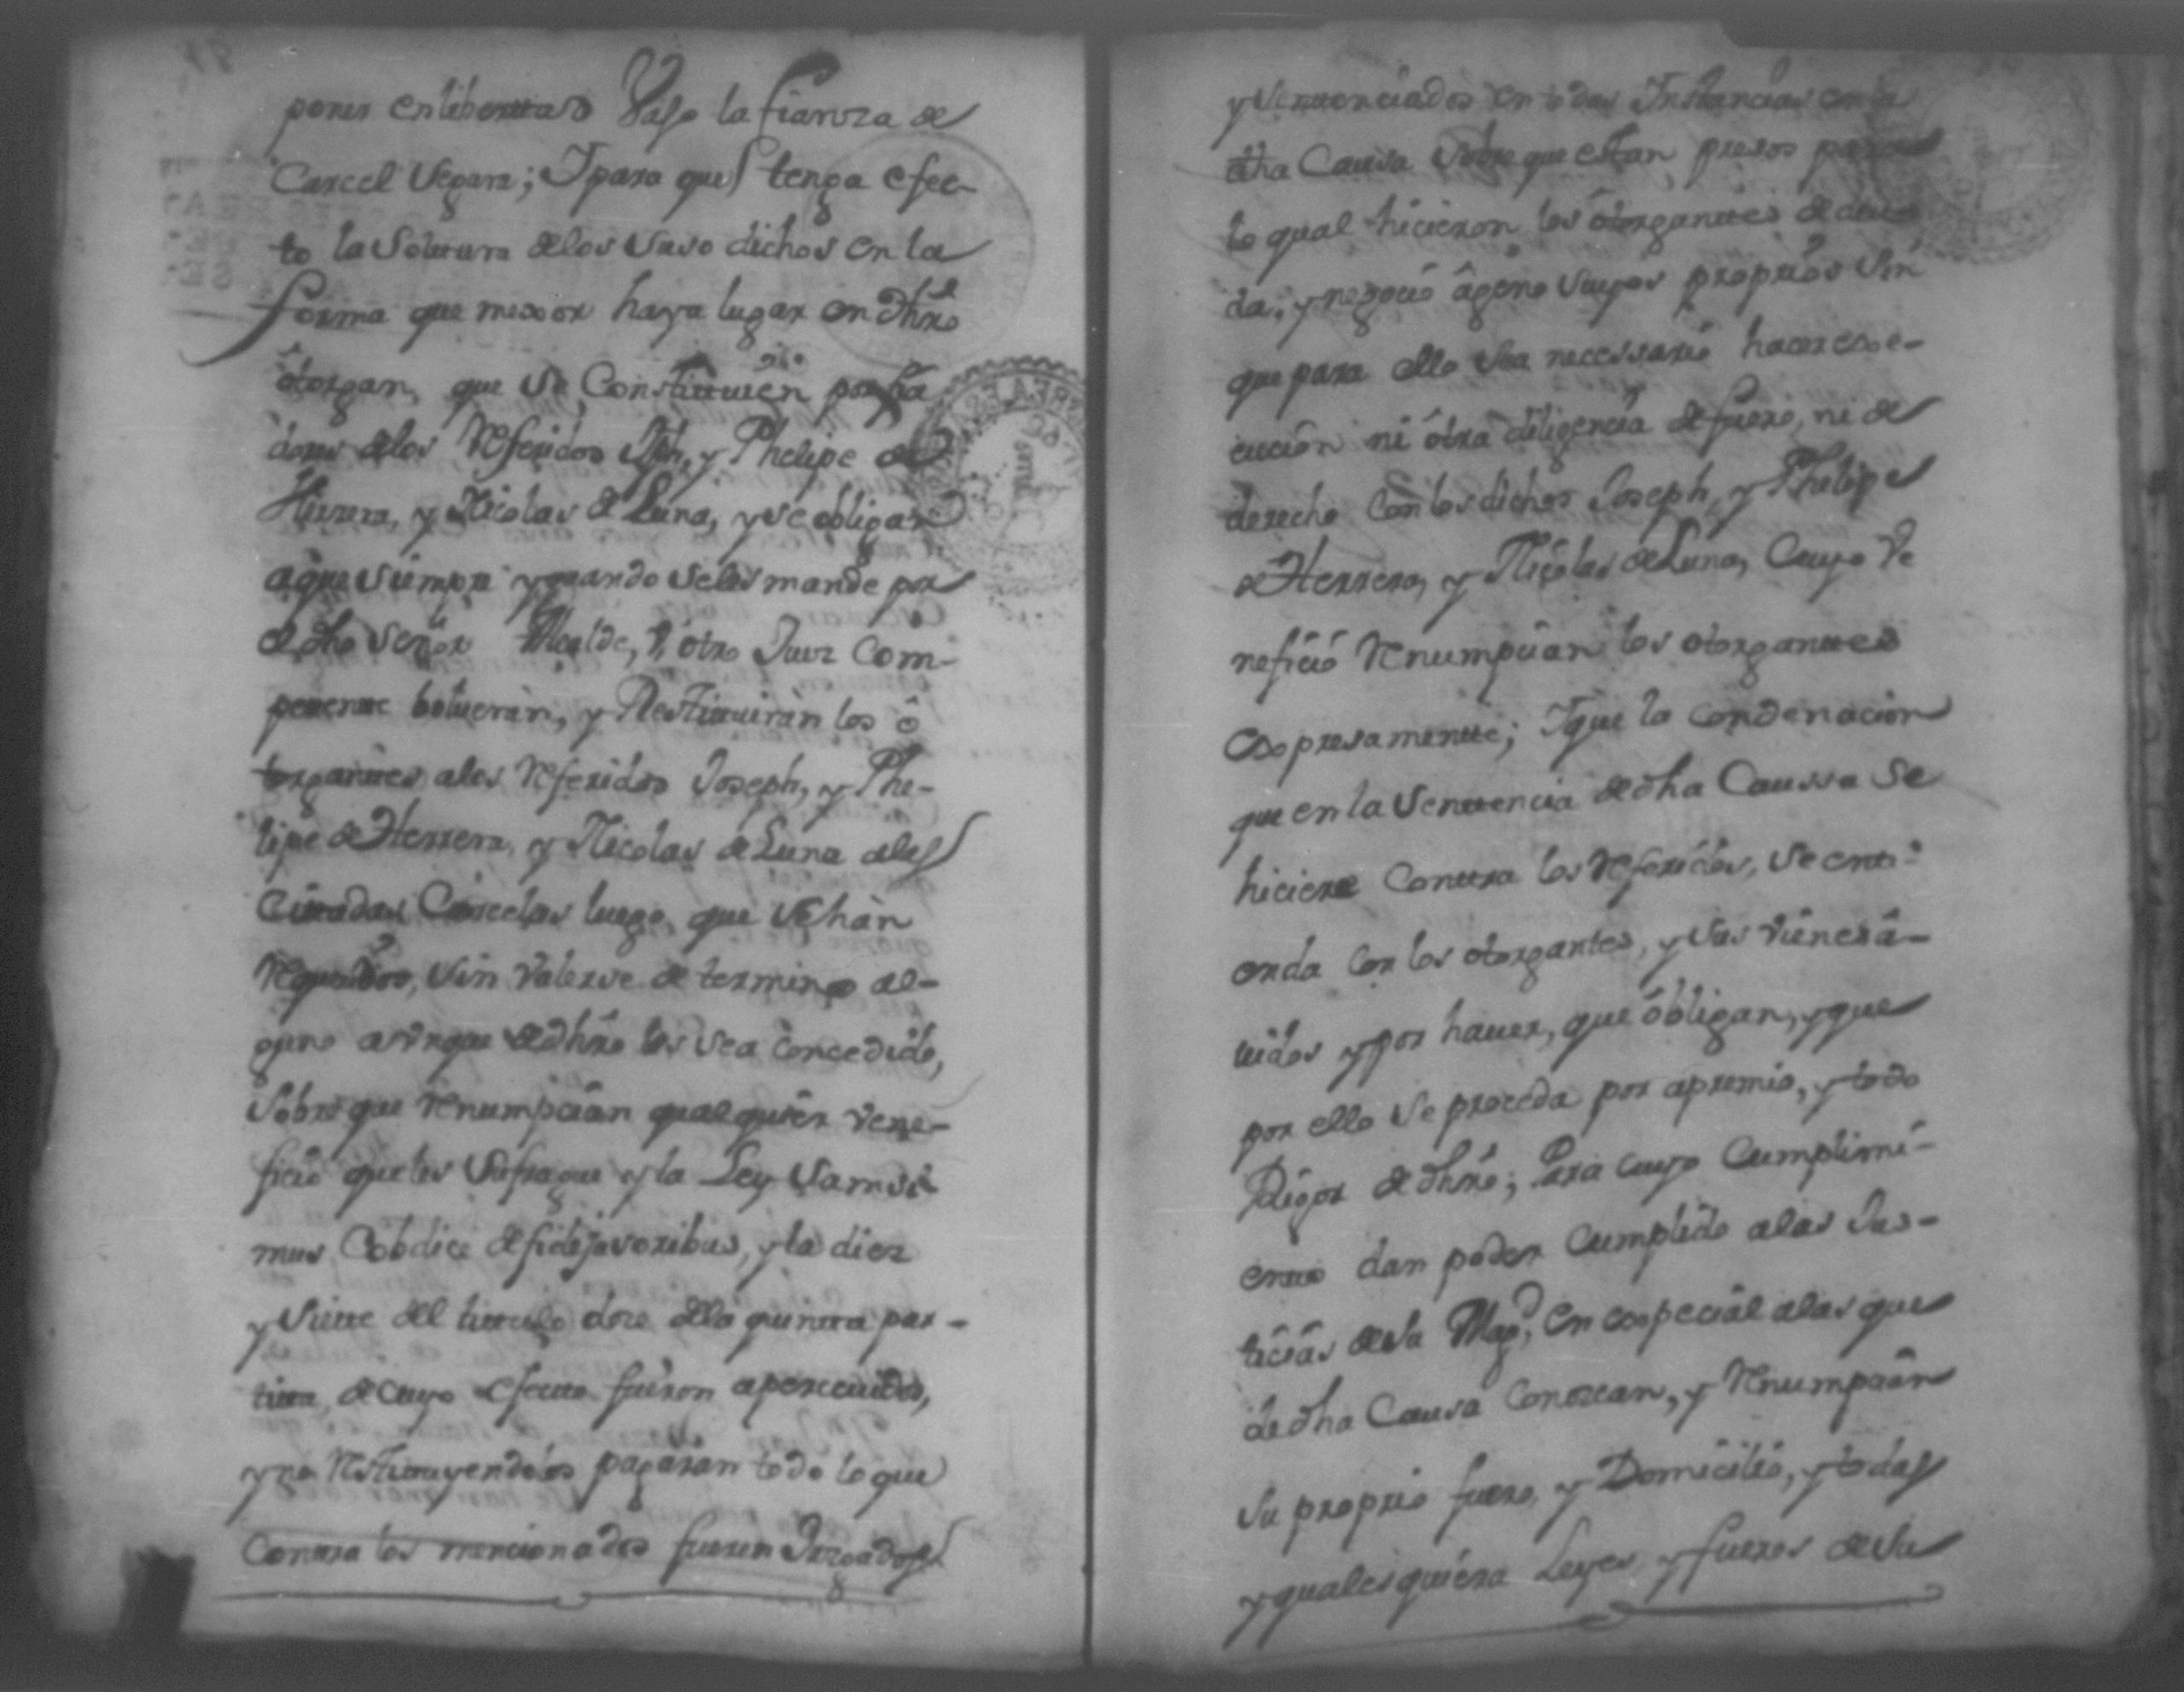 poner en libertad Vajo la fianza de
Carcel Segura; Y para que tenga efec-
to la Soltura delos Suso dichos en la
forma que mexor haya lugar en dhro
otorgan, que se Constituien por fia
dores delos Referidos Jph, y Phelipe de
Herrera, y Nicolas de Luna, y se obligan
a que siempre y quando se les mande por
el dho Señor Alcalde, û otro Juez Com-
petente bolveràn, y Restituiràn los ô
torgantes alos Referidos Joseph, y Phe-
lipe de Herrera, y Nicolas de Luna alas
Citadas Carceles luego, que seàn
Requeridos, sin Valerse de termino al-
guno aunque de dhro les sea concedido,
Sobre que Renumpcian qualquier vene-
ficio que les Sufrague y la Ley Sancsi
mus Cobdice de fidejusoribus, y la diez
y Siette del titulo doze dela quinta par-
tida, de cuyo efecto fueron apercevidos,
y no Restituyendolos pagaràn todo lo que
Contra los mencionados fueren Juzgados
y Sentenciados en todas Instancias en la
dha Causa Sobre que estan presos para
lo qual hicieron los ôtorgantes de deu
da, y negocio âgeno Suyos proprios Sin
que para ello sea necessario hacer exe-
cucion ni ôtra diligencia de fuero, ni de
derecho Con los dichos Joseph, y Phelipe
de Herrera, y Nicolas de Luna, Cuyo Ve
neficio Renumpcian los otorgantes
Expresamente; Y que la Condenacion
que en la Sentencia de dha Caussa se
hiciere Contra los Referidos, se enti-
enda con los otorgantes, y sus Vienes â-
vidos y por haver, que ôbligan, y que
por ello se proceda por apremio, y todo
Rigor de dhro; Para cuyo Cumplimi-
ento dan poder Cumplido alas Jus-
ticias de su Magd, en especial alas que
de dha Causa Conozcan, y Renumpcian
su proprio fuero, y Domicilio, y todas
y qualesquiera Leyes y fueros de su